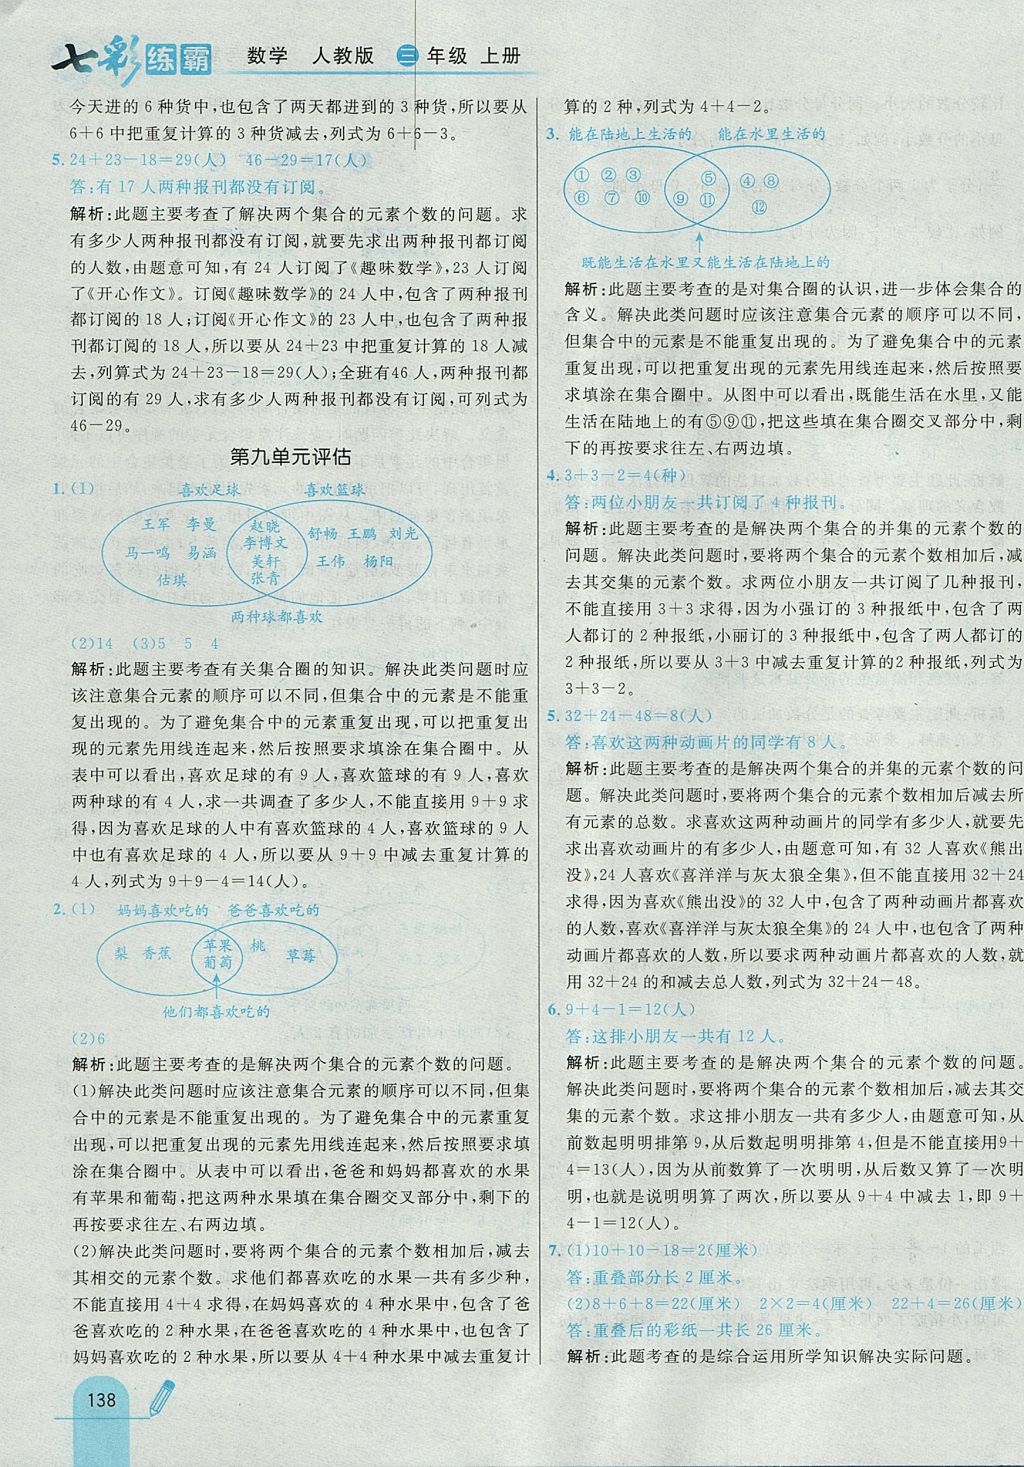 七彩练霸 数学 人教版 三年级 上册
今天进的6种货中,也包含了两天都进到的3种货,所以要从
6+6中把重复计算的3种货减去,列式为6+6-3。
5. 24+23-18=29(人) 46-29=17(人)
答:有17人两种报刊都没有订阅。
解析:此题主要考查了解决两个集合的元素个数的问题。求
有多少人两种报刊都没有订阅,就要先求出两种报刊都订阅
的人数,由题意可知,有24人订阅了《趣味数学》,23人订阅
了《开心作文》。订阅《趣味数学》的24人中,包含了两种报刊
都订阅的18人;订阅《开心作文》的23人中,也包含了两种报
刊都订阅的18人,所以要从24+23中把重复计算的18人减
去,列算式为24+23-18=29(人);全班有46人,两种报刊都订阅
的有29人,求有多少人两种报刊都没订阅,可列式为
46-29。
第九单元评估
1. (1) 喜欢足球 喜欢篮球
王军 李曼 赵晓 舒畅 王鹏 刘光
马一鸣 易涵 李博文
估琪 美轩 王伟 杨阳
张青
两种球都喜欢
(2)14 (3)5 5 4
解析:此题主要考查有关集合圈的知识。解决此类问题时应
该注意集合元素的顺序可以不同,但集合中的元素是不能重
复出现的。为了避免集合中的元素重复出现,可以把重复出
现的元素先用线连起来,然后按照要求填涂在集合圈中。从
表中可以看出,喜欢足球的有9人,喜欢篮球的有9人,喜欢
两种球的有4人,求一共调查了多少人,不能直接用9+9求
得,因为喜欢足球的人中有喜欢篮球的4人,喜欢篮球的9人
中也有喜欢足球的4人,所以要从9+9中减去重复计算的
4人,列式为9+9-4=14(人)。
2. (1) 妈妈喜欢吃的 爸爸喜欢吃的
梨 香蕉 苹果 桃 草莓
葡萄
他们都喜欢吃的
(2)6
解析:此题主要考查的是解决两个集合的元素个数的问题。
(1)解决此类问题时应该注意集合元素的顺序可以不同,但集
合中的元素是不能重复出现的。为了避免集合中的元素重复
出现,可以把重复出现的元素先用线连起来,然后按照要求填
涂在集合圈中。从表中可以看出,爸爸和妈妈都喜欢的水果
有苹果和葡萄,把这两种水果填在集合圈交叉部分中,剩下的
再按要求往左、右两边填。
(2)解决此类问题时,要将两个集合的元素个数相加后,减去
其相交的元素个数。求他们都喜欢吃的水果一共有多少种,
不能直接用4+4求得,在妈妈喜欢的4种水果中,包含了爸
爸喜欢吃的2种水果,在爸爸喜欢的4种水果中,也包含了
妈妈喜欢吃的2种水果,所以要从4+4种水果中减去重复计
算的2种,列式为4+4-2。
3. 能在陆地上生活的 能在水里生活的
① ② ③ ⑤ ④ ⑧
⑥ ⑦ ⑩ ⑨ ⑪ ⑫
既能生活在水里又能生活在陆地上的
解析:此题主要考查的是对集合圈的认识,进一步体会集合的
含义。解决此类问题时应该注意集合元素的顺序可以不同,
但集合中的元素是不能重复出现的。为了避免集合中的元素
重复出现,可以把重复出现的元素先用线连起来,然后按照要
求填涂在集合圈中。从图中可以看出,既能生活在水里,又能
生活在陆地上的有⑤⑨⑪,把这些填在集合圈交叉部分中,剩
下的再按要求往左、右两边填。
4. 3+3-2=4(种)
答:两位小朋友一共订阅了4种报刊。
解析:此题主要考查的是解决两个集合的并集的元素个数的
问题。解决此类问题时,要将两个集合的元素个数相加后,减
去其交集的元素个数。求两位小朋友一共订阅了几种报刊,
不能直接用3+3求得,因为小强订的3种报纸中,包含了两人都订的
2种报纸,小丽订的3种报纸中,也包含了两人都订的
2种报纸,所以要从3+3中减去重复计算的2种报纸,列式为
3+3-2。
5. 32+24-48=8(人)
答:喜欢这两种动画片的同学有8人。
解析:此题主要考查的是解决两个集合的并集的元素个数的问
题。解决此类问题时,要将两个集合的元素个数相加后减去所
有元素的总数。求喜欢这两种动画片的同学有多少人,就要先
求出喜欢动画片的有多少人,由题意可知,有32人喜欢《熊出
没》,24人喜欢《喜洋洋与灰太狼全集》,不能直接用32+24
求得,因为喜欢《熊出没》的32人中,包含了两种动画片都喜欢
的人数,喜欢《喜洋洋与灰太狼全集》的24人中,也包含了两种
动画片都喜欢的人数,所以要先求出两种动画片都喜欢的人数,就
用32+24的和减去总人数,列式为32+24-48。
6. 9+4-1=12(人)
答:这排小朋友一共有12人。
解析:此题主要考查的是解决两个集合的元素个数的问题。
解决此类问题时,要将两个集合的元素个数相加后,减去其交
集的元素个数。求这排小朋友一共有多少人,由题意可知,从
前数起明明排第9,从后数起明明排第4,但是不能直接用9+
4=13(人),因为从前数算了一次明明,从后数又算了一次明
明,也就是说明明算了两次,所以要从9+4中减去1,即9+
4-1=12(人)。
7. (1)10+10-18=2(厘米)
答:重叠部分长2厘米。
(2)8+6+8=22(厘米) 2×2=4(厘米) 22+4=26(厘米)
答:重叠后的彩纸一共长26厘米。
解析:此题考查的是综合运用所学知识解决实际问题。
138